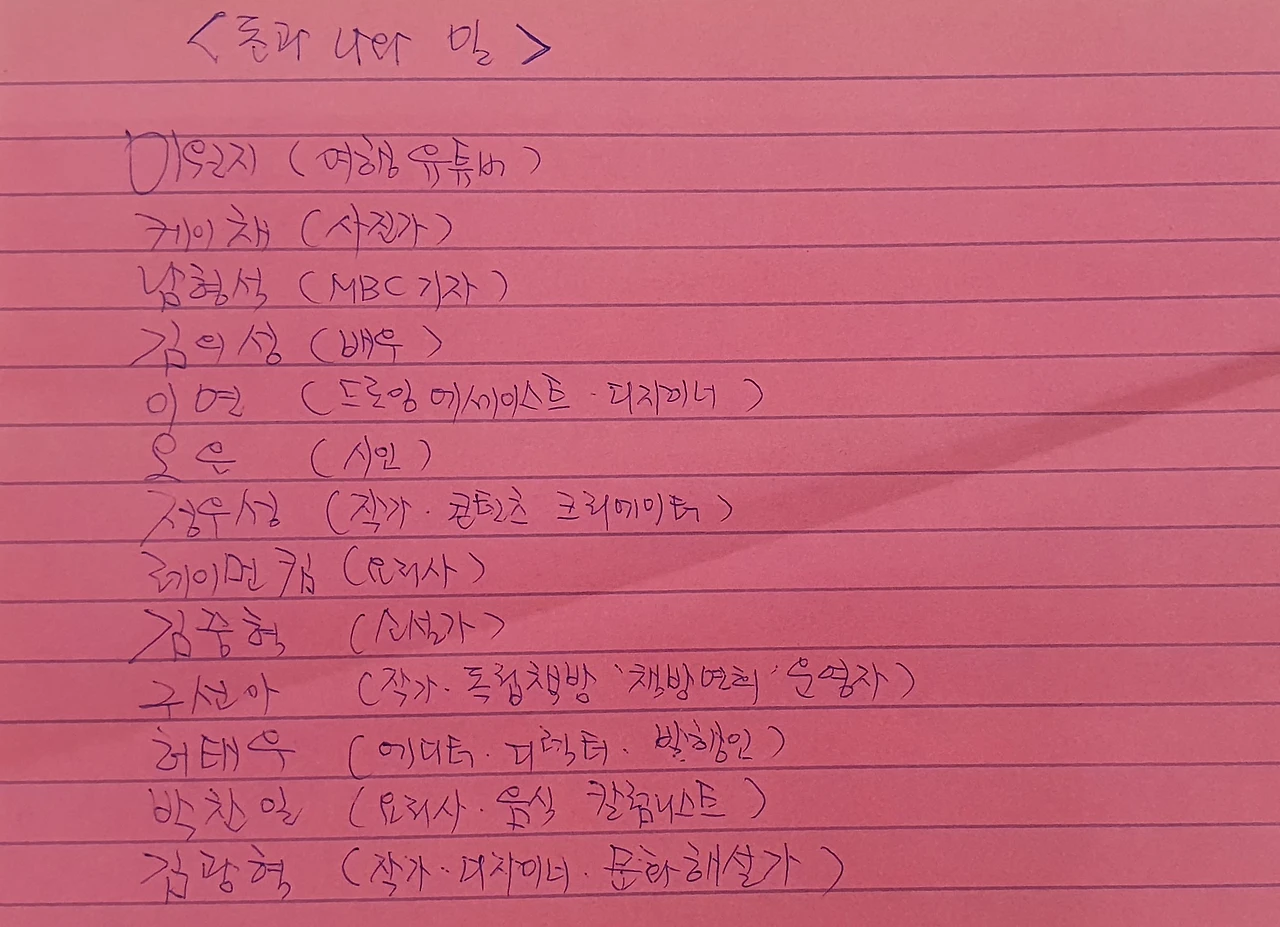 <돈과 나와 일>
이원지 (여행 유튜버)
케이채 (사진가)
남형석 (MBC기자)
김의성 (배우)
이연 (드로잉 에세이스트·디자이너)
오은 (시인)
정우성 (작가·콘텐츠 크리에이터)
레이먼킴 (요리사)
김중혁 (소설가)
구선아 (작가·독립책방 '책방연희' 운영자)
허태우 (에디터·디렉터·발행인)
박찬일 (요리사·음식 칼럼니스트)
김광혁 (작가·디자이너·문화해설가)